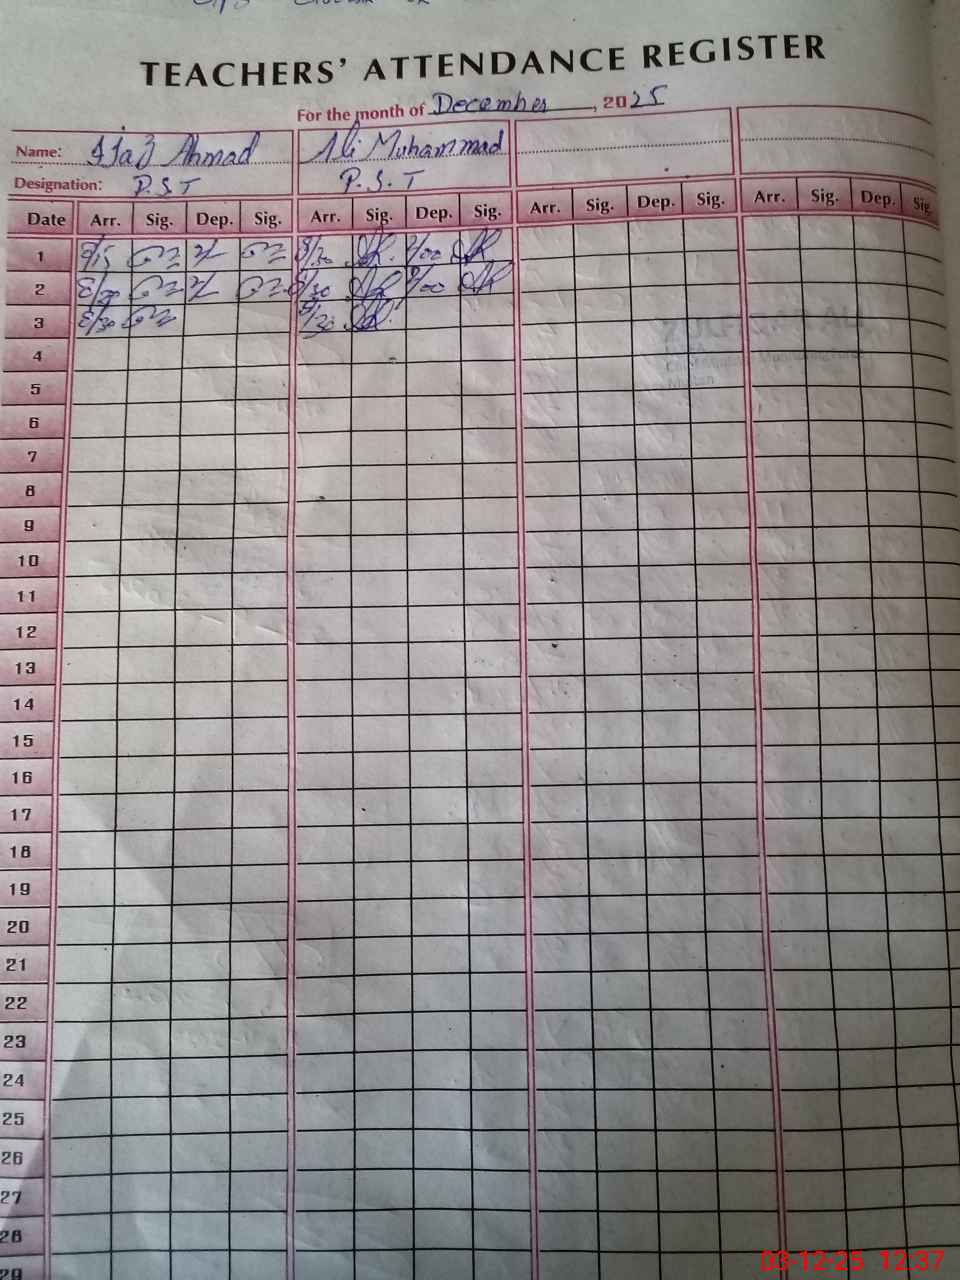 TEACHERS' ATTENDANCE REGISTER
For the month of December, 2025
Name: Ajaz Ahmad Ali Muhammad
Designation: P.S.T P.S.T
Date Arr. Sig. Dep. Sig. Arr. Sig. Dep. Sig. Arr. Sig. Dep. Sig. Arr. Sig. Dep. Sig.
1 8/15 8/30 2/00
2 8/30 8/30 2/00
3 8/30 8/30
4
5
6
7
8
9
10
11
12
13
14
15
16
17
18
19
20
21
22
23
24
25
26
27
28
29
03-12-25 12:37